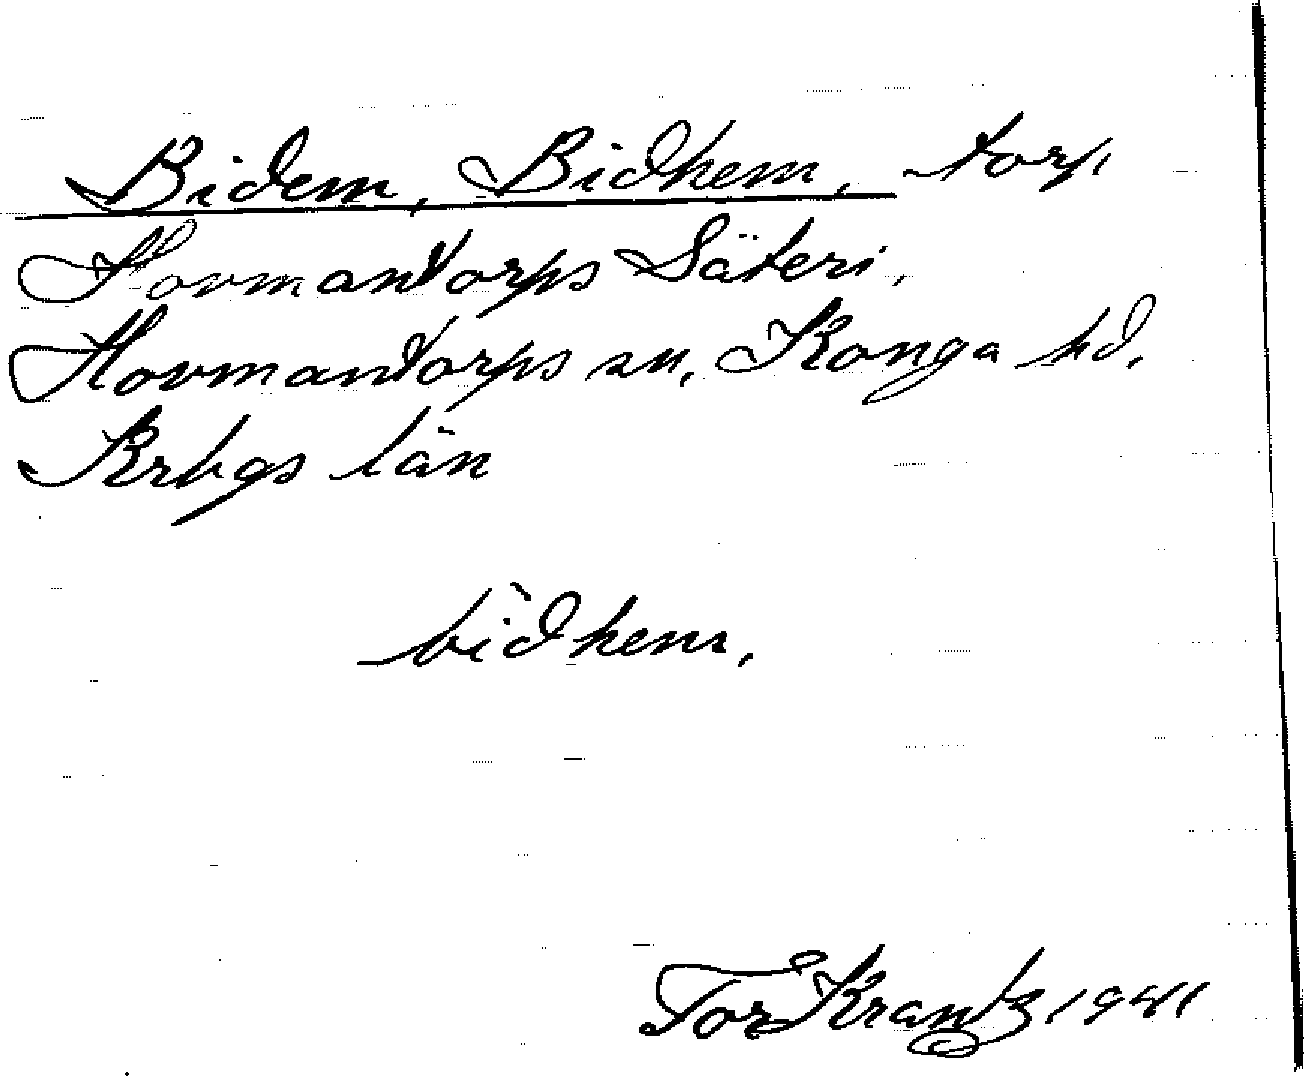 Bidem, Bidhem, torp
Hovmantorps Säteri,
Hovmantorps sn, Konga hd.
Krbgs län
bìdhem,
Tor Krantz 1941